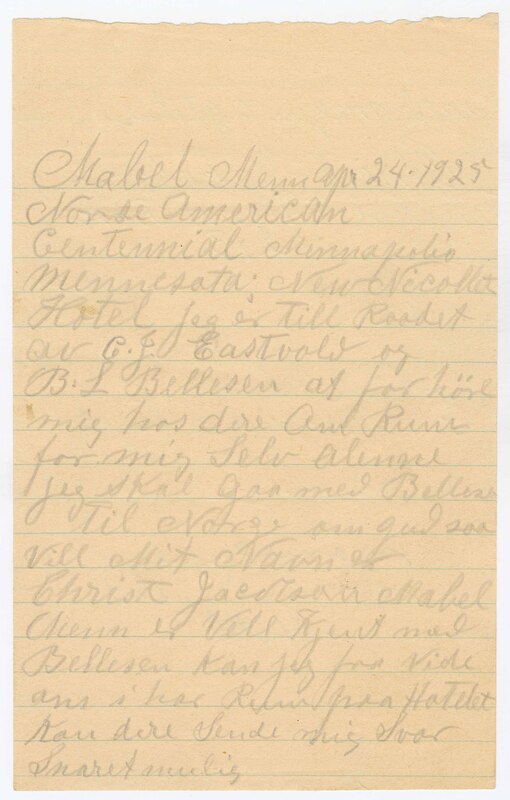 Mabel Menn Apr 24. 1925
Norse American
Centennial Mennapolis
Mennesota. New Nicollet
Hotel jeg er till Raadet
av C. J. Eastvold og
B. L Bellesen at for höre
mig hos dire Om Rum
for mig Selv alenne
jeg skal gaa med Bellesen
Til Norge om gud saa
Vill Mit Navn er
Christ Jacobson Mabel
Menn er Vell Kjent med
Bellesen kan jeg faa Vide
om i har Rum paa Hotelet
kan dire Sende mig Svar
Snaret mulig